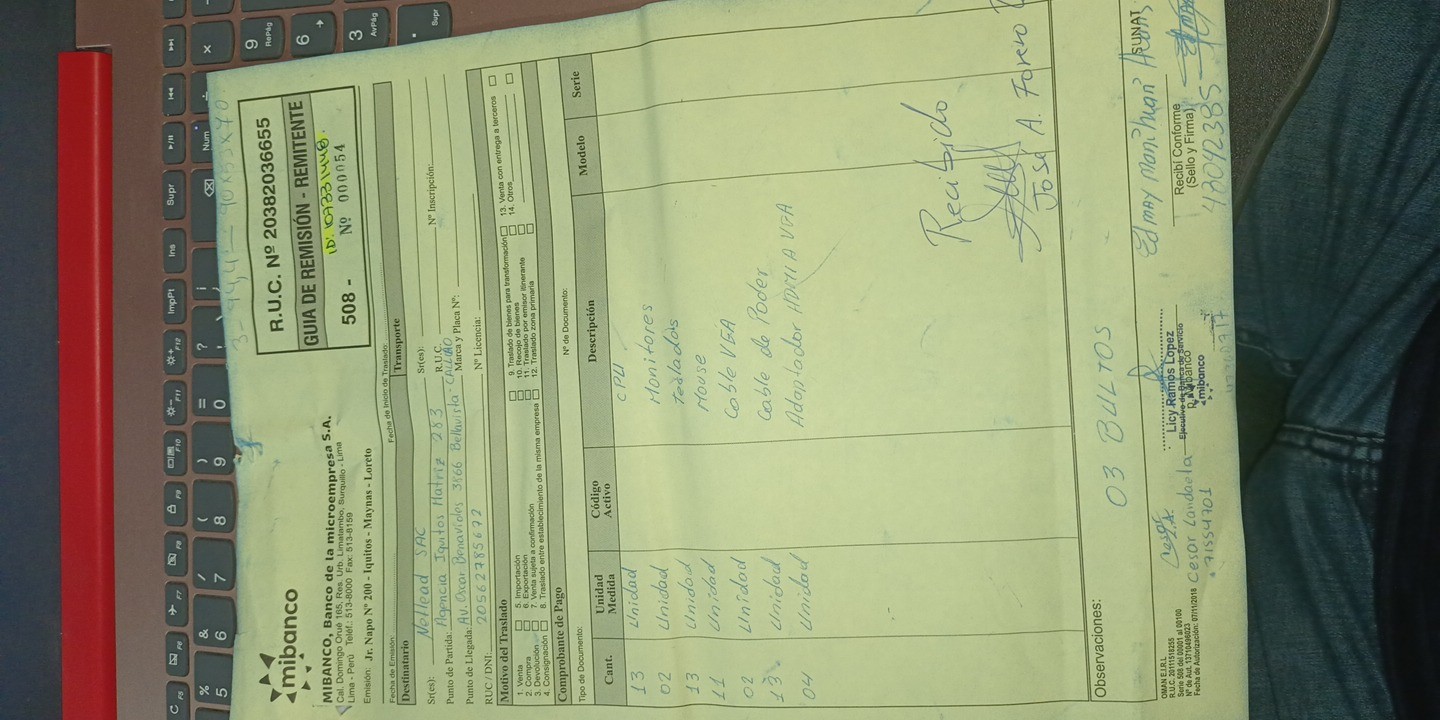 3 - 44,4 - 90x53x40
mibanco
MIBANCO, Banco de la microempresa S.A.
Cal. Domingo Orué 165, Res. Urb. Limatambo, Surquillo - Lima
Lima - Perú Teléf.: 513-8000 Fax: 513-8159
Emisión: Jr. Napo Nº 200 - Iquitos - Maynas - Loreto
R.U.C. Nº 20382036655
GUIA DE REMISIÓN - REMITENTE
508 - Nº 000054
Fecha de Emisión:
Fecha de Inicio de Traslado:
Destinatario
Transporte
Sr(es): Netlead SAC
Sr(es):
Punto de Partida: Agencia Iquitos Matriz 283
R.U.C.
Nº Inscripción:
Punto de Llegada: Av. Oscar Benavides 3866 Bellavista - CALLAO
Marca y Placa Nº:
RUC / DNI: 20562785672
Nº Licencia:
Motivo del Traslado
1. Venta
2. Compra
3. Devolución
4. Consignación
5. Importación
6. Exportación
7. Venta sujeta a confirmación
8. Traslado entre establecimiento de la misma empresa
9. Traslado de bienes para transformación
10. Recojo de bienes
11. Traslado por emisor itinerante
12. Traslado zona primaria
13. Venta con entrega a terceros
14. Otros
Comprobante de Pago
Tipo de Documento:
Nº de Documento:
Cant. Unidad Medida Código Activo Descripción Modelo Serie
13 Unidad CPU
02 Unidad Monitores
13 Unidad Teclados
11 Unidad Mouse
02 Unidad Cable VGA
13 Unidad Cable de Poder
04 Unidad Adaptador HDMI A VGA
Recibido
José A. Forero
Observaciones:
03 BULTOS
OMAN E.I.R.L
R.U.C. 20111518255
Serie 508 del 00001 al 00100
Fecha de Autorización: 07/11/2018
Cesar Landaeta
71554701
Licy Ramos Lopez
Ejecutivo de Banca de Servicio
mibanco
Recibí Conforme
(Sello y Firma)
42042385
SUNAT